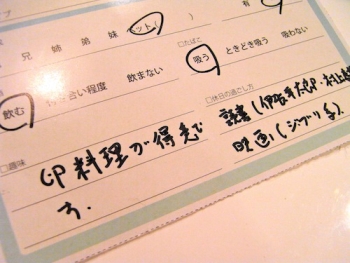 有
兄 姉 弟 妹 ペット(
□たばこ
飲む 付き合い程度 飲まない 吸う ときどき吸う 吸わない
□休日の過ごし方
読書(伊坂幸太郎・村上春
□趣味
映画(ジブリ
料理が得意で
す.